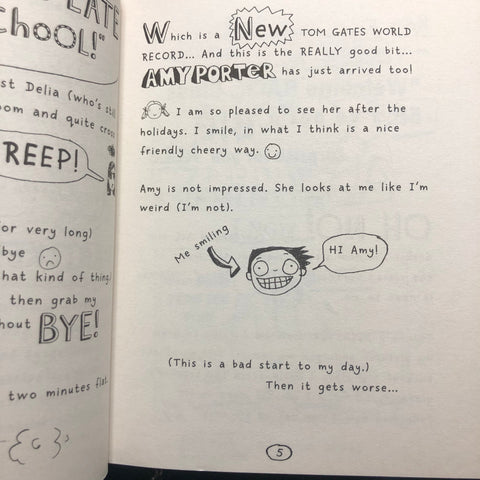 LATE
SCHOOL!"
st Delia (who's still
oom and quite cross
REEP!
or very long)
bye
hat kind of thing)
then grab my
hout BYE!
two minutes flat.
Which is a New TOM GATES WORLD
RECORD... And this is the REALLY good bit...
AMY PORTER has just arrived too!
I am so pleased to see her after the
holidays. I smile, in what I think is a nice
friendly cheery way.
Amy is not impressed. She looks at me like I'm
weird (I'm not).
Me smiling
HI Amy!
(This is a bad start to my day.)
Then it gets worse...
5